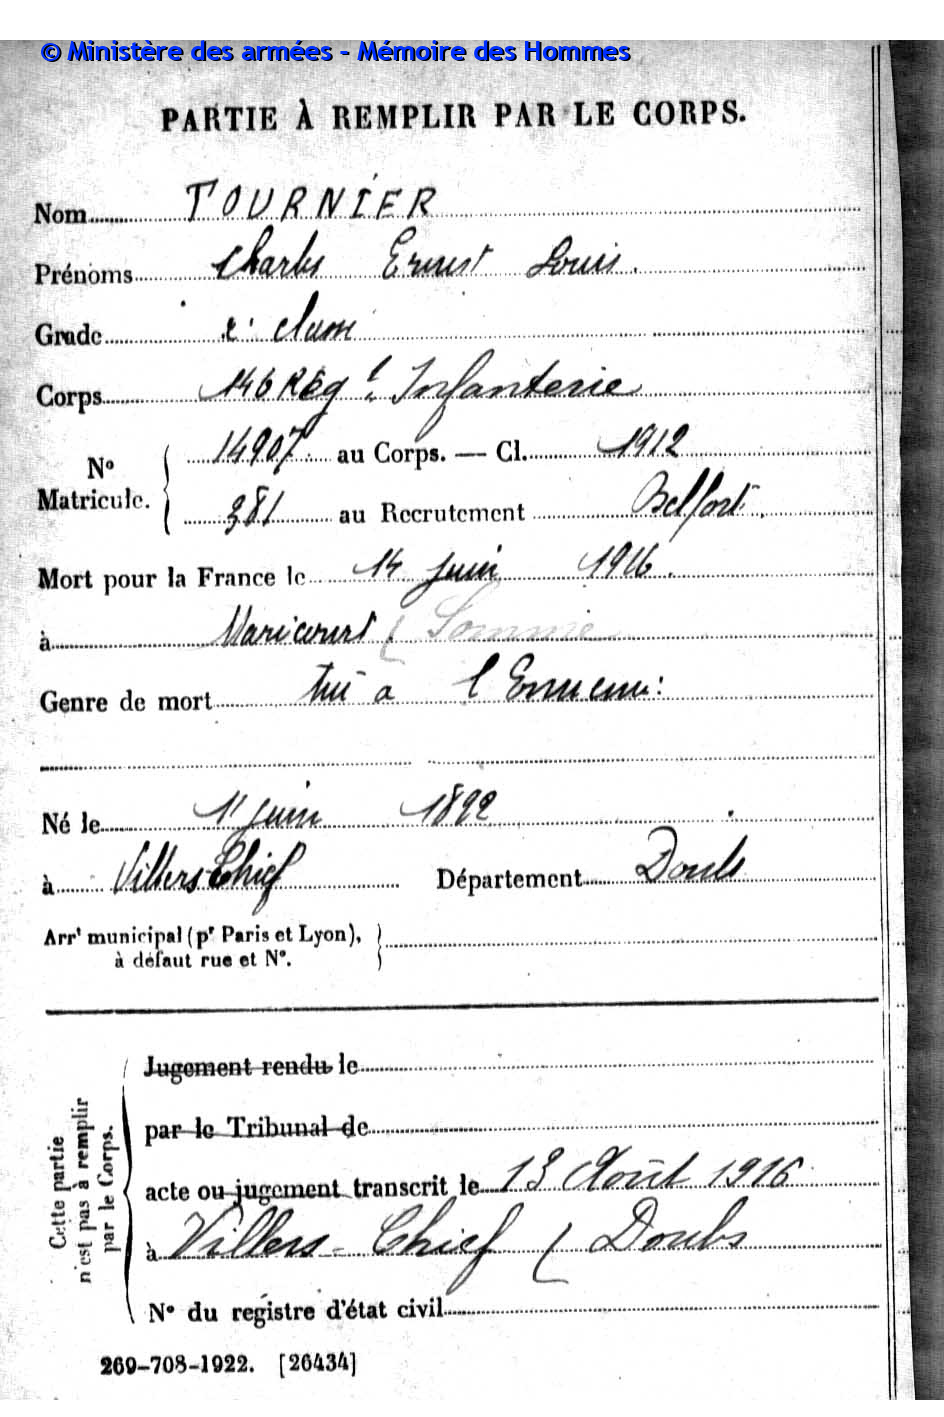 © Ministère des armées - Mémoire des Hommes
PARTIE À REMPLIR PAR LE CORPS.
Nom TOURNIER
Prénoms Charles Ernest Louis.
Grade 2e classe
Corps 146 Régt Infanterie
N° Matricule. 14907 au Corps. — Cl. 1912
381 au Recrutement Belfort.
Mort pour la France le 14 juin 1916.
à Maricourt (Somme
Genre de mort tué à l'Ennemi
Né le 11 juin 1892
à Villers-Chief Département Doubs
Arrt municipal (pr Paris et Lyon),
à défaut rue et N°.
Cette partie
n'est pas à remplir
par le Corps.
Jugement rendu le
par le Tribunal de
acte ou jugement transcrit le 13 Août 1916
à Villers-Chief (Doubs
N° du registre d'état civil
269-708-1922. [26434]